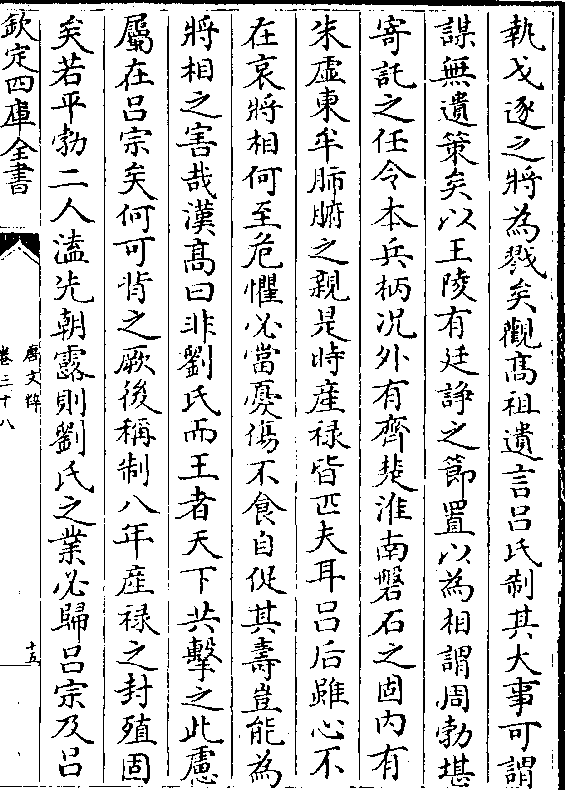 執戈逐之將為戮矣觀髙祖遺言吕氏制其大事可謂
謀無遺策矣以王陵有廷諍之節置以為相謂周勃堪
寄託之任令本兵柄况外有齊楚淮南磐石之固内有
朱虛東牟肺腑之親是時産禄皆匹夫耳吕后雖心不
在哀將相何至危懼必當憂傷不食自促其壽豈能為
將相之害哉漢髙曰非劉氏而王者天下共擊之此慮
屬在吕宗矣何可背之厥後稱制八年産禄之封殖固
矣若平勃二人溘先朝露則劉氏之業必歸吕宗及吕
欽定四庫全書
唐文粹
卷三十八
十五